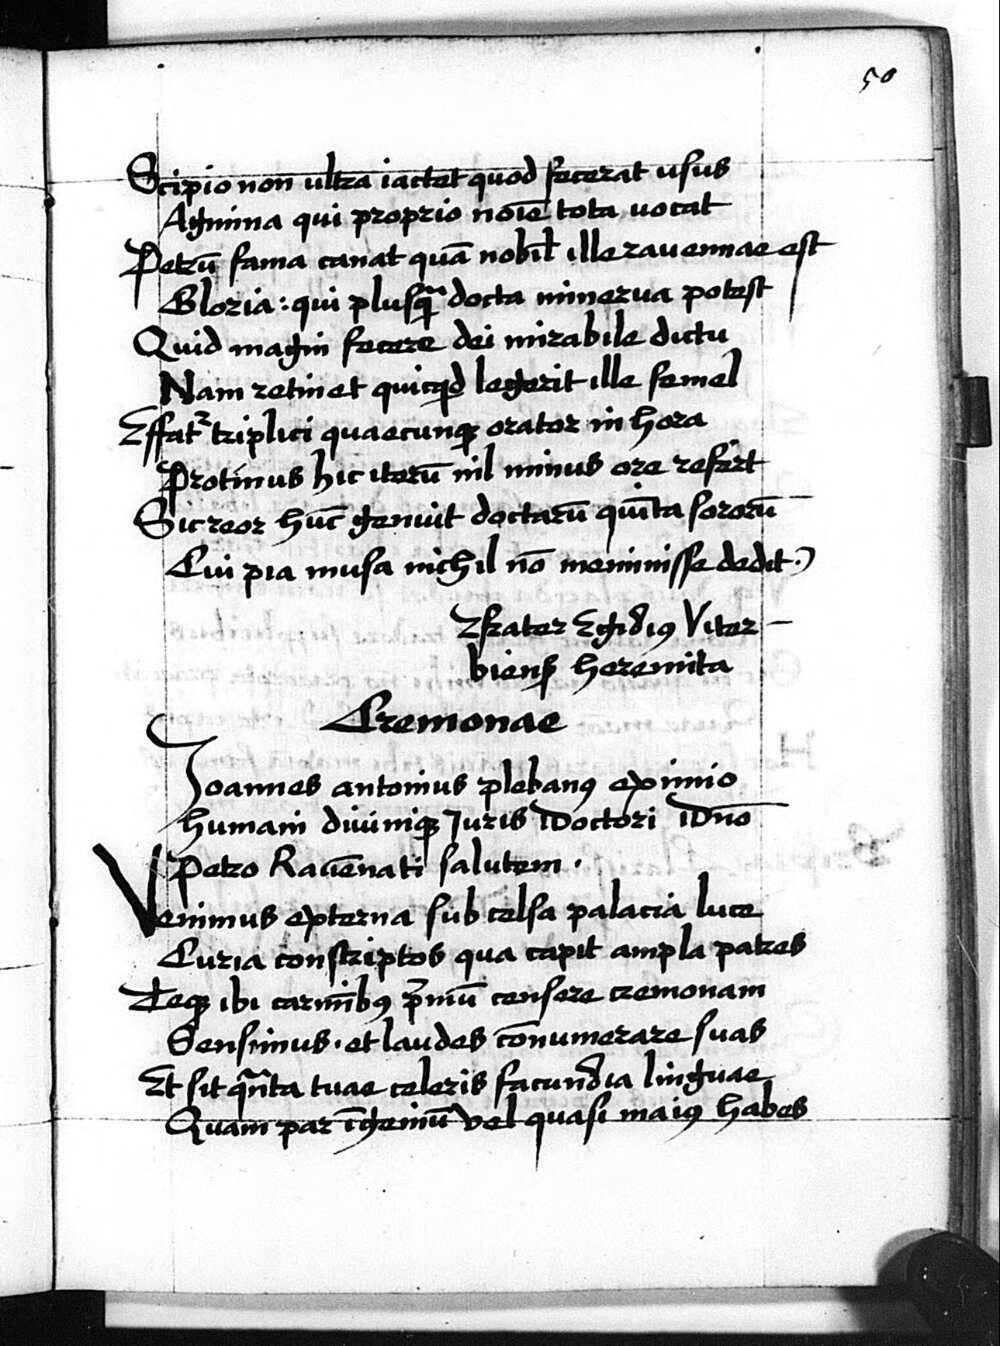 50
Scipio non ultra iactet quod fecerat usus
Agmina qui proprio noīe tota uocat
Petrū fama canat quā nobil' ille rauennae est
Gloria: qui plusq̄ docta minerua potest
Quid magni fecere dei mirabile dictu
Nam retinet quicqd legerit ille semel
Effat' triplici quaecunq orator in hora
Protinus hic iterū nil minus ore refert
Sic reor hūc genuit doctarū quīta sororū
Cui pia musa nichil nō meminisse dedit.
frater Egidiꝰ Viter-
biens heremita
Cremonae
Joannes antonius plebanꝰ eximio
humani diuiniq Juris Doctori Dno
Petro Rauēnati salutem.
Venimus externa sub celsa palacia luce
Curia conscriptos qua capit ampla patres
Teq ibi carmībꝰ p̄miū censere cremonam
Sensimus. et laudes cōnumerare suas
Et sit q̄nta tuae celeris facundia linguae
Quam par īgeniū vel quasi maiꝰ habes